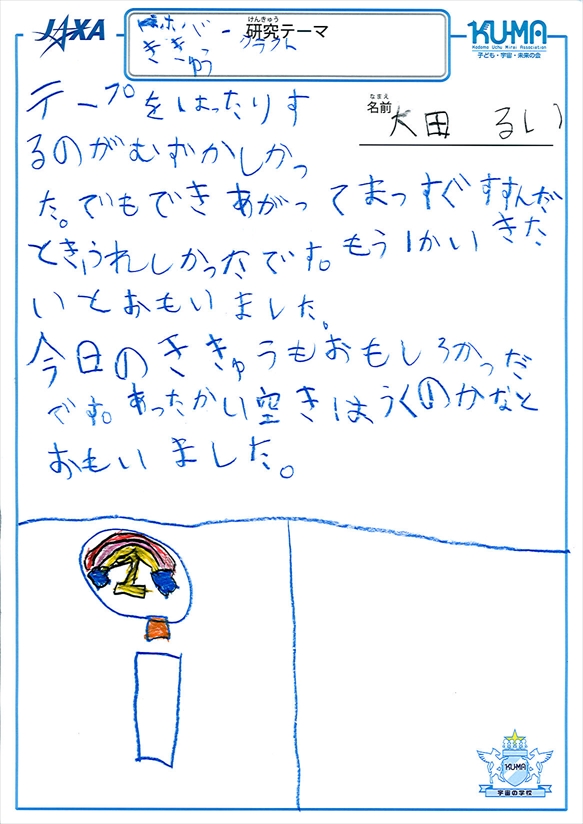 JAXA
けんきゅう
研究テーマ
ホバークラフト
ききゅう
KUMA
Kodomo Uchu Mirai Association
子ども・宇宙・未来の会
なまえ
名前
大田 るい
テープをはったりす
るのがむずかしかっ
た。でもできあがってまっすぐすすんだ
ときうれしかったです。もう1かいきた
いとおもいました。
今日のききゅうもおもしろかっだ
です。あったかい空きは、うくのかなと
おもいました。
1
KUMA
宇宙の学校